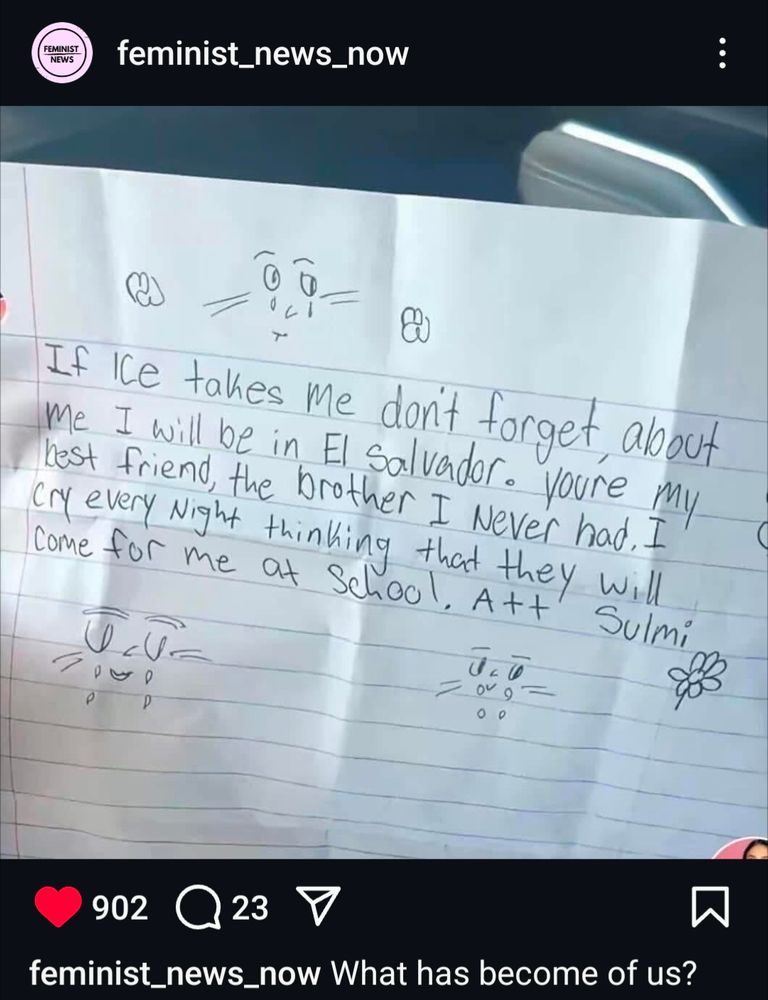 FEMINIST
NEWS
feminist_news_now
If ICe takes Me don't forget, about
Me I will be in El Salvador. Youre my
best friend, the brother I Never had. I
Cry every Night thinking that they will
Come for me at School. A++ Sulmi
902
23
feminist_news_now What has become of us?